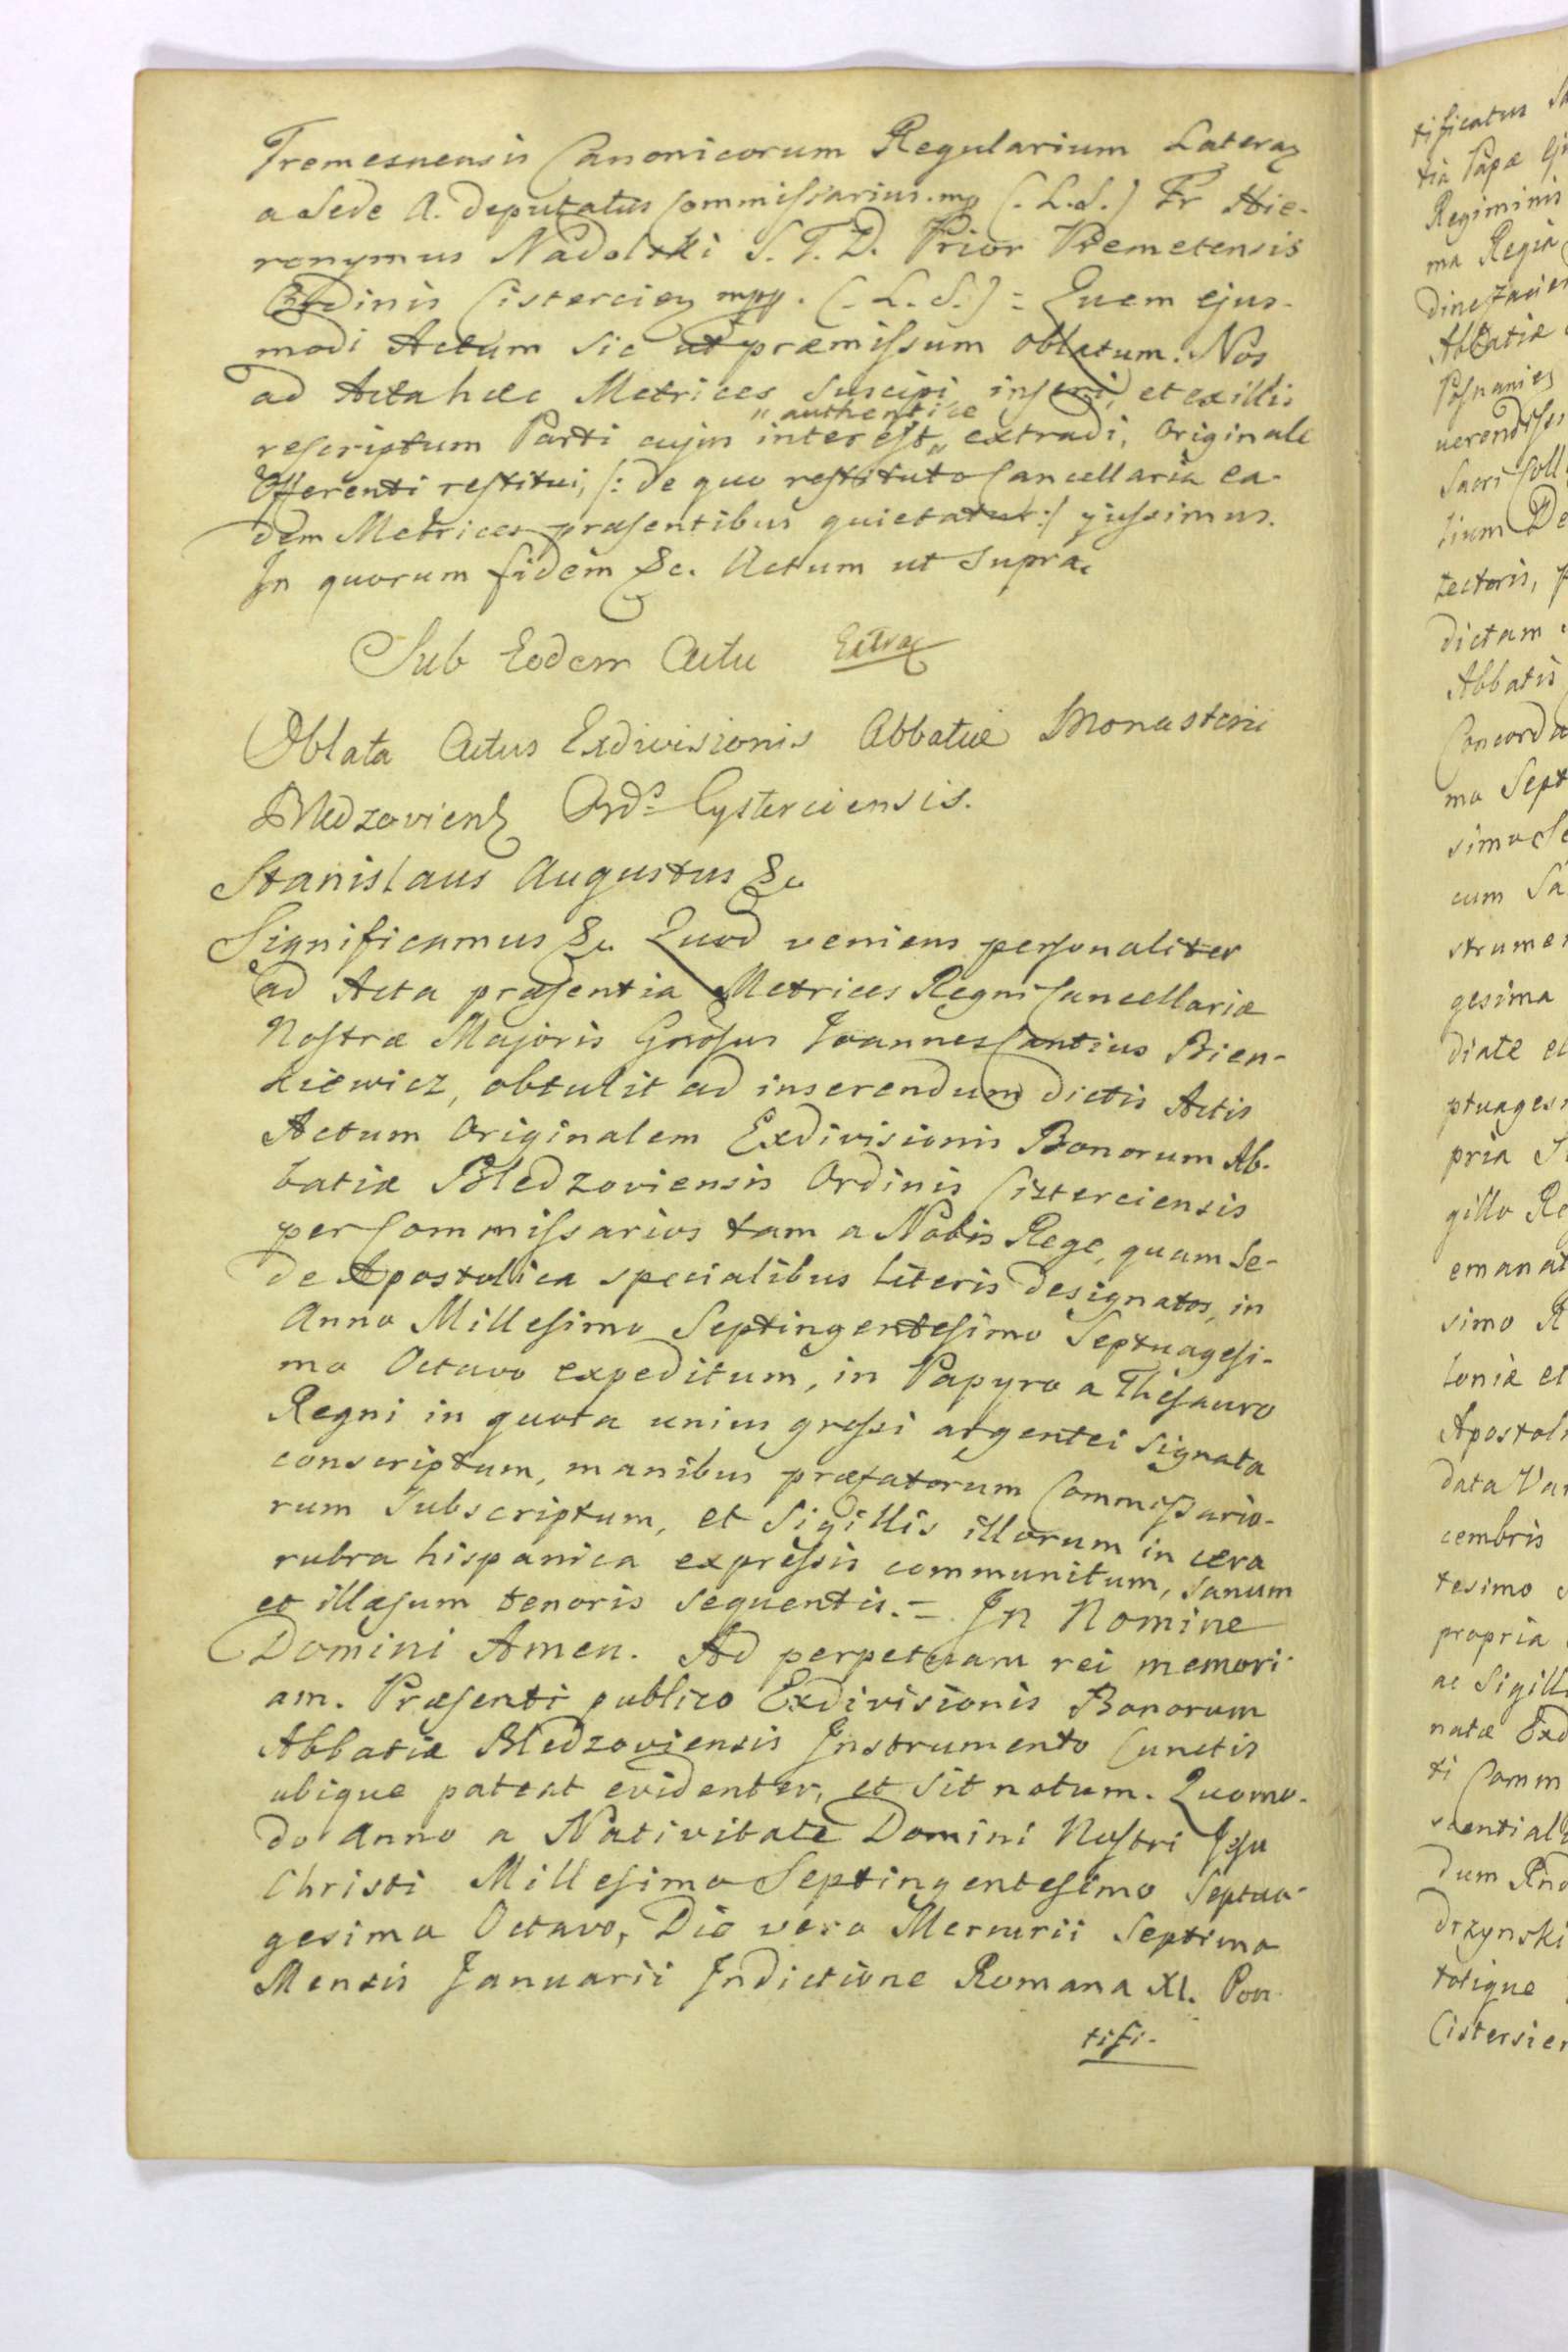 Tremesnensis Canonicorum Regularium Lateraȝ
a Sede A. deputatus Commissarius. mp (. L.S.) Fr Hie-
ronymus Nadolski S. T. D. Prior Premetensis
Ordinis Cistercieȝ mpp. (. L. S.) = Quem ejus-
modi Actum sic ut præmissum oblatum. Nos
ad Acta hæc Metrices suscipi inseri, et ex illis
rescriptum Parti cujus interest „authentice„ extradi, Originale
Offerenti restitui, /: de quo restituto Cancellaria ea-
dem Metrices præsentibus quietatur :/ jussimus.
In quorum fidem &c. Actum ut supra.
Sub Eodem Actu Extrax
Oblata Actus Exdivisionis Abbatiæ Monasterii
Bledzovienȝ Ordˢ Cysterciensis.
Stanislaus Augustus &c
Significamus &c Quod veniens personaliter
ad Acta præsentia Metrices Regni Cancellariæ
Nostræ Majoris Gnrosus Joannes Cantius Bien-
kiewicz, obtulit ad inserendum dictis Actis
Actum Originalem Exdivisionis Bonorum Ab-
batiæ Bledzoviensis Ordinis Cisterciensis
per Commissarios tam a Nobis Rege, quam Se-
de Apostolica specialibus literis designatos, in
Anno Millesimo Septingentesimo Septuagesi-
mo Octavo expeditum, in Papyro a Thesauro
Regni in quota unius grossi argentei signata
conscriptum, manibus præfatorum Commissario-
rum Subscriptum, et Sigillis illorum in cera
rubra hispanica expressis communitum, sanum
et illæsum tenoris sequentis. = In Nomine
Domini Amen. Ad perpetuam rei memori-
am. Præsenti publico Exdivisionis Bonorum
Abbatiæ Bledzoviensis Instrumento Cunctis
ubique pateat evidenter, et sit notum. Quomo-
do Anno a Nativitate Domini Nostri Jesu
Christi Millesimo Septingentesimo Septua-
gesimo Octavo, Die vero Mercurii Septima
Mensis Januarii Indictione Romana XI. Pon-
tifi-
tificatus
tia Papæ
Regiminis
ma Regia
Abbatiæ
Posnanieȝ
uerendissi
Sacri Coll
lium De
tectoris,
dictam
Abbatis
Concorda
ma Sept
simo Se
cum Sa
strumen
gesima
diate et
ptuagesi
pria
gillo Re
emanat
simo R
loniæ et
Apostoli
data Var
cembris
tesimo
propria
ac Sigill
natæ Exd
ti Comm
dum
drzynski
totique
Cistersien